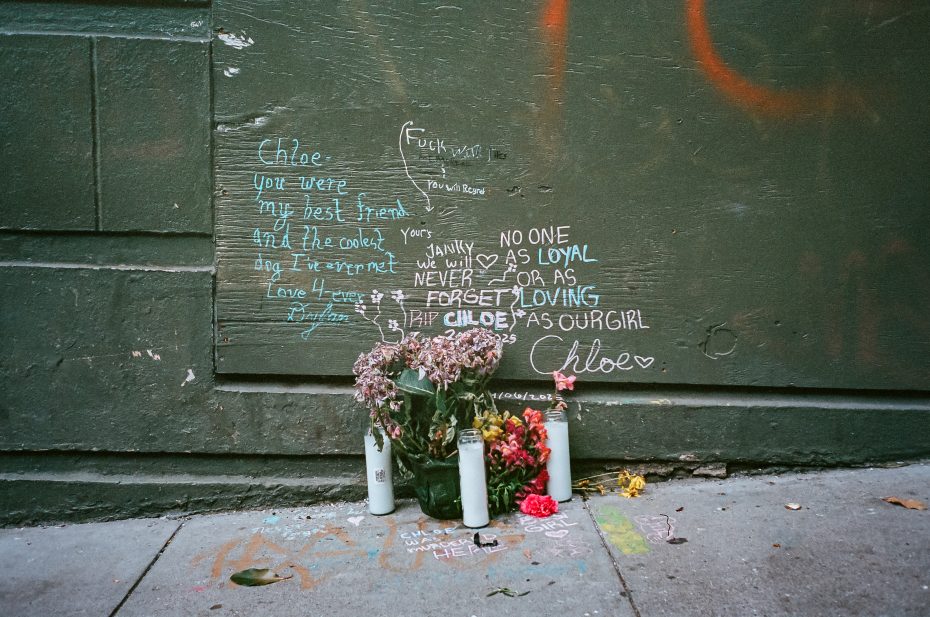 Chloe-
you were
my best friend
and the coolest
dog I've ever met
Love 4-ever
Dylan
FUCK
&
You will Regret
Yours
JANKY
We will
NEVER
FORGET
RIP CHLOE
NO ONE
AS LOYAL
OR AS
LOVING
AS OUR GIRL
Chloe
CHLOE
WAS
HERE
GIRL